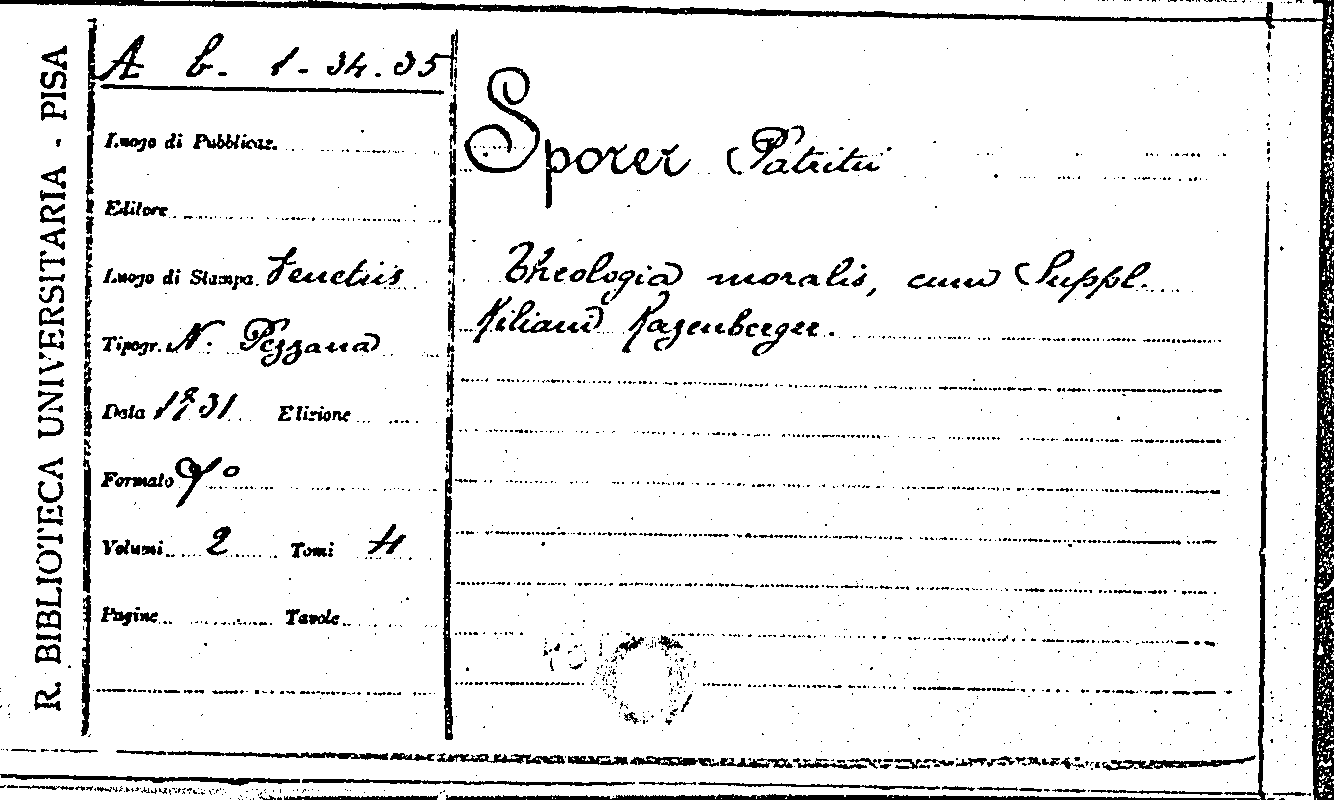 R. BIBLIOTECA UNIVERSITARIA - PISA
A b. 1 - 34. 35
Luogo di Pubblicaz.
Editore
Luogo di Stampa Venetiis
Tipogr. N. Pezzana
Data 1731 Edizione
Formato
Volumi 2 Tomi 4
Pagine Tavole
Sporer Patritii
Theologia moralis, cum Suppl.
Kiliani Kazenberger.